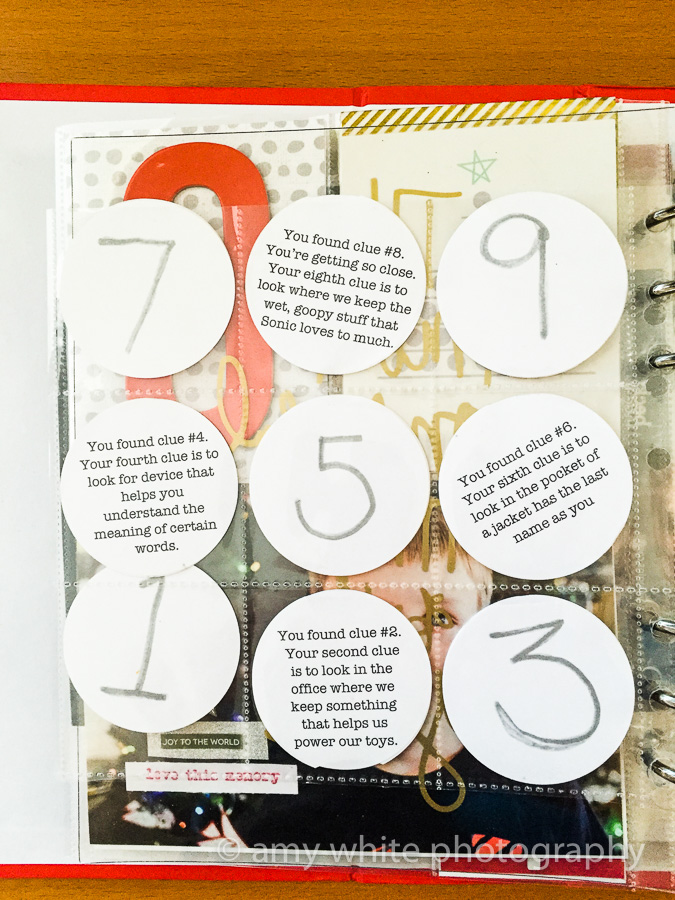 7
You found clue #8.
You're getting so close.
Your eighth clue is to
look where we keep the
wet, goopy stuff that
Sonic loves to much.
9
You found clue #4.
Your fourth clue is to
look for device that
helps you
understand the
meaning of certain
words.
5
You found clue #6.
Your sixth clue is to
look in the pocket of
a jacket has the last
name as you
1
You found clue #2.
Your second clue
is to look in the
office where we
keep something
that helps us
power our toys.
3
JOY TO THE WORLD
love this memory
© amy white photography